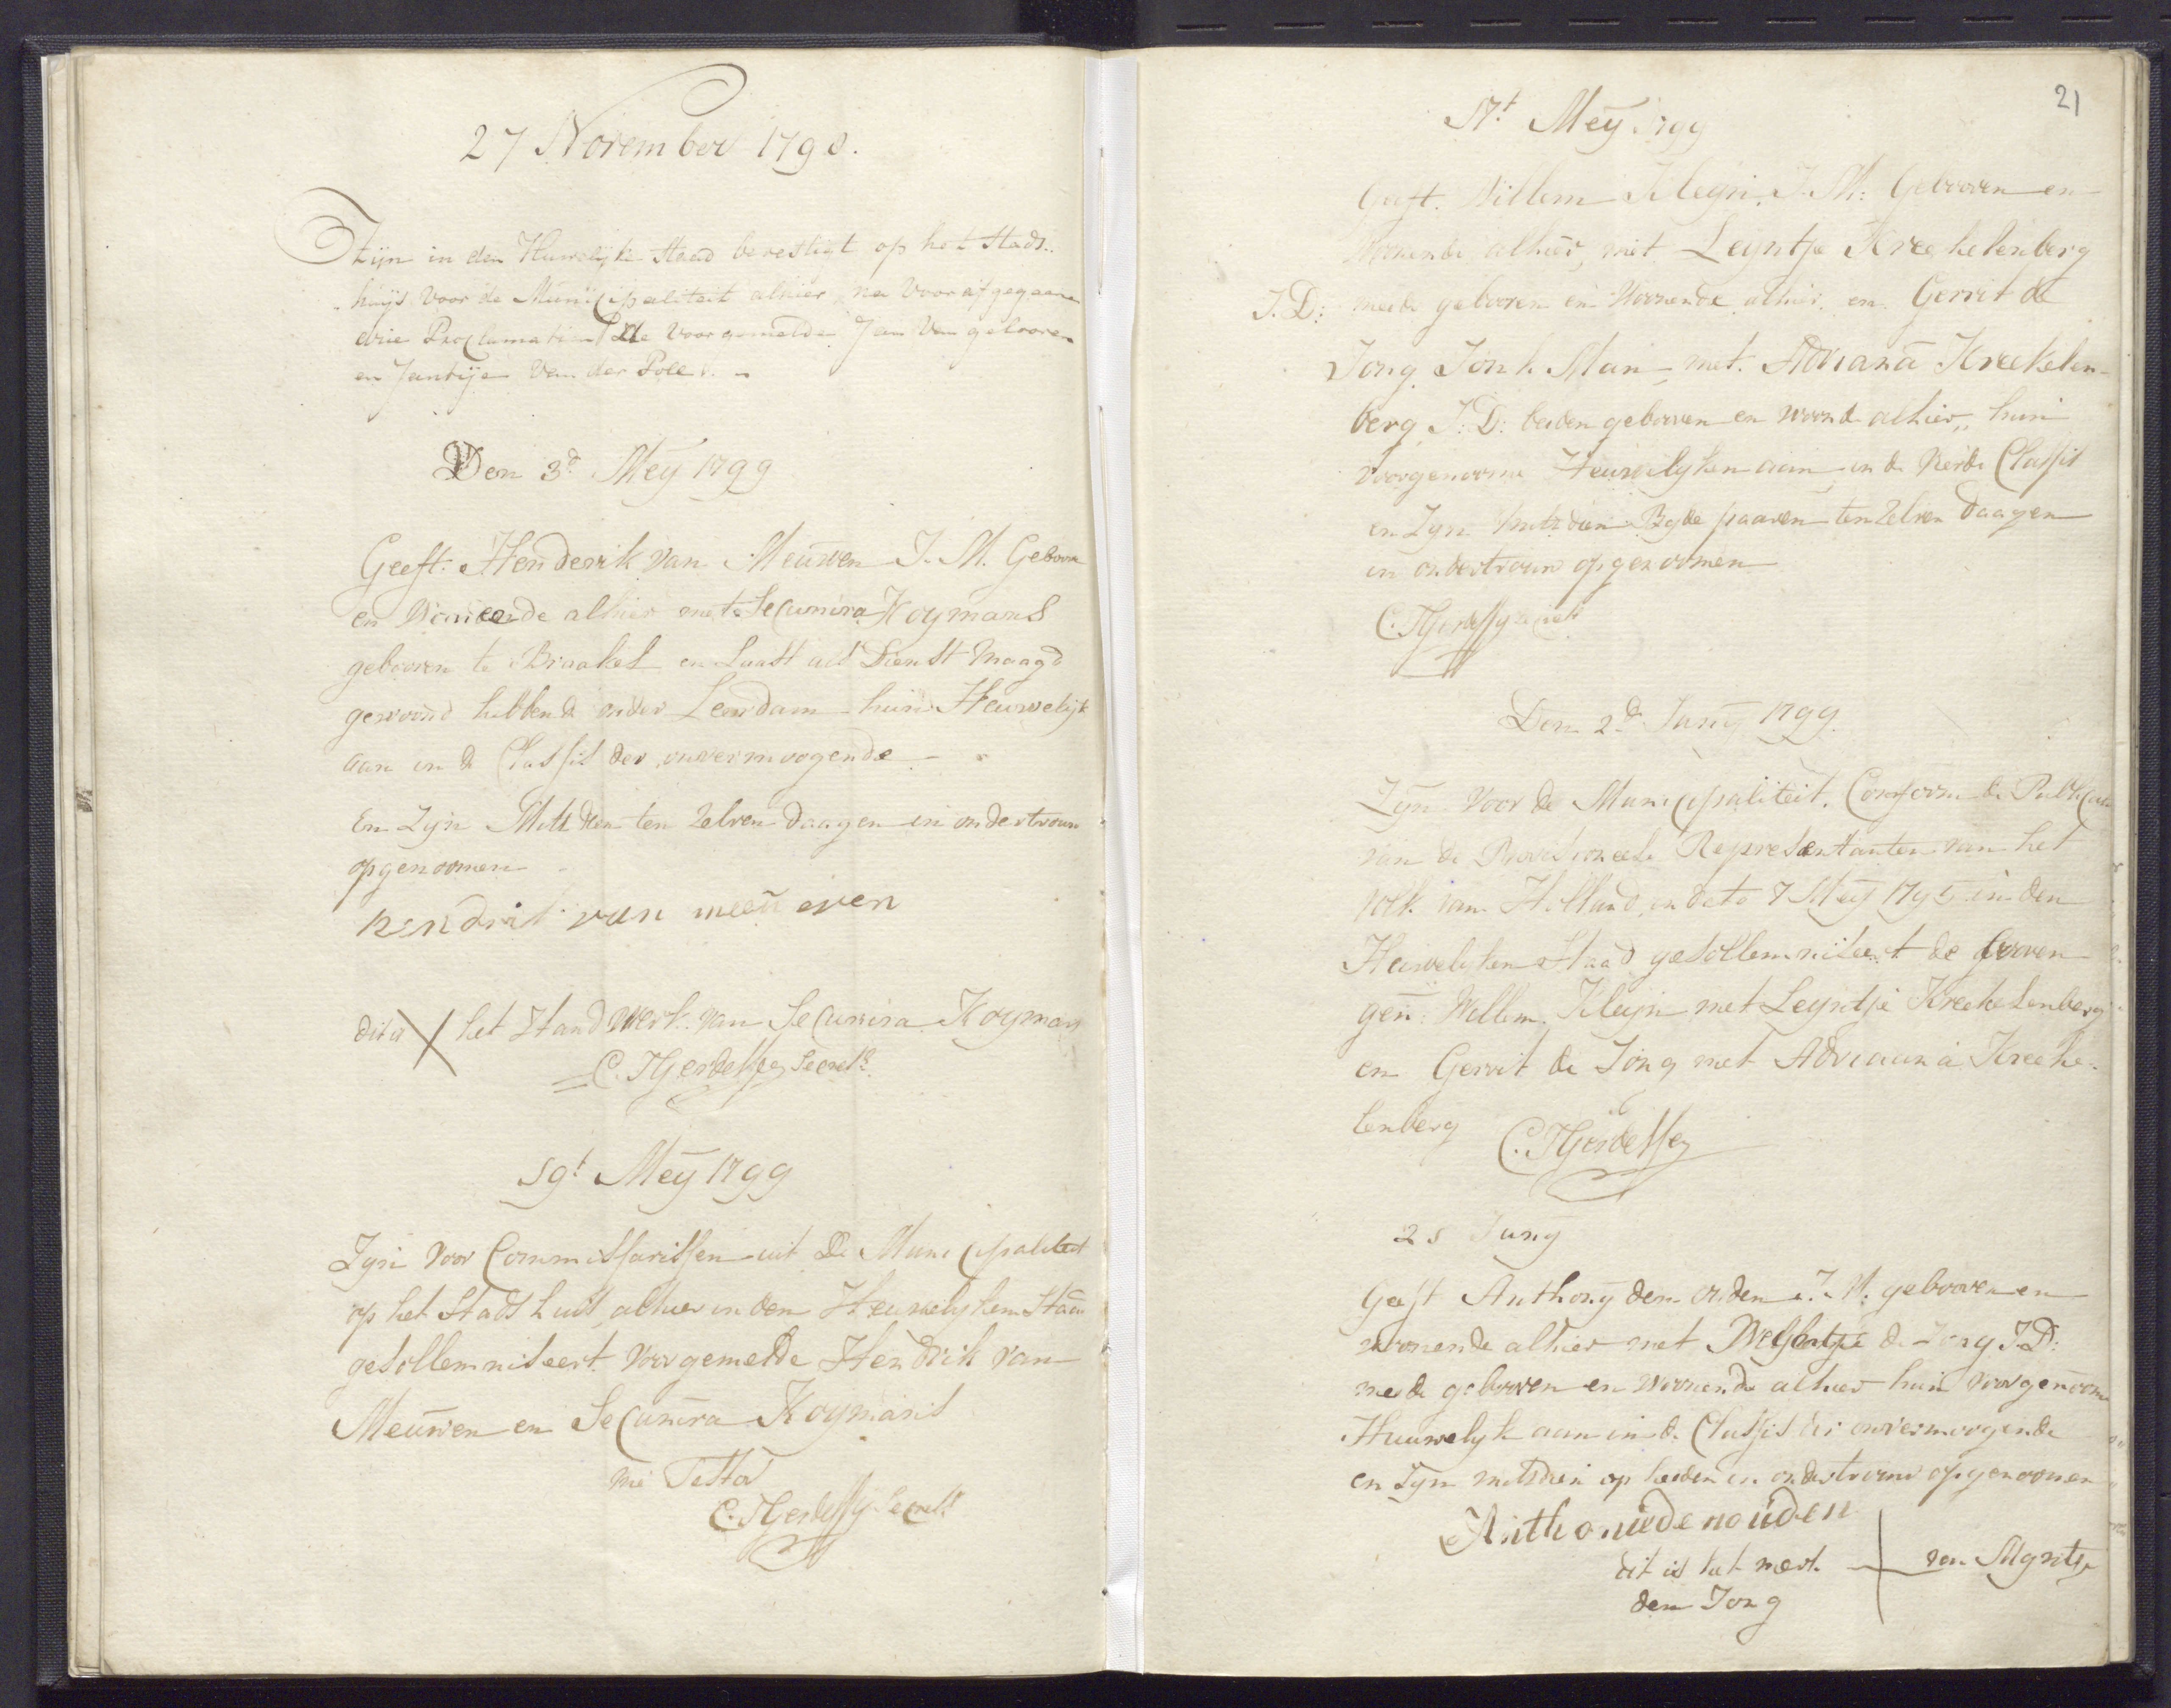 27 November 1798.
Zijn in den Huwelijke Staad bevestigt op het Stads..
huijs voor de Municipaliteit alhier, na voor af gegaane
drie Proclamatien de voorgemelde Jan Van
en Jantije Van der Pole.
Den 3d Meÿ 1799
Geeft. Henderik van Meuwen J. M. Geboore
en Woneende alhier met Secunira Koymans
gebooren te Braakel en Laast als Dienst Maagd
gewoond hebbende onder Leerdam hun Heuwelijk
aan in de Classis der onvermoogende
En Zijn Mits dien ten Zelven daagen in ondertrouw
opgenoomen
hendrik van meeuwen
dit is X het Hand merk van Secunira Koyman
C. Secrets.
19t Meÿ 1799
Zijn voor Commissarissen uit De Municipaliteit
op het Stads huis alhier in den Heuwelyken Staat
gesollemniseert voorgemelde Hendrik van
Meuwen en Secunira Koymans
me Teste
C. Secrets
21
17t Meÿ 1799
Geeft. Willem Kleyn J. M: Gebooren en
Woonende alhier, met Leyntje Kreekelenberg
J. D: meede gebooren en Woonende alhier en Gerrit de
Jong Jonk Man met Adriana Kreekelen-
berg J: D: beiden gebooren en woonde alhier,, hun
voorgenoome Heuwelyken aan in de Vierde Classis
en Zyn mits dien Beyde paaren ten Zelven daagen
in ondertrouw opgenoomen
C. Secrets
Den 2de Juny 1799.
Zyn voor de Municipaliteit. Conform de Publicatie
van de Provisioneele Representanten van het
volk van Holland in dato 7 Meÿ 1795 in den
Heuwelyken Staad gesollemniseert de boven
gen: Willem Kleyn met Leyntje Kreekelenberg
en Gerrit de Jong met Adriaana Kreeke-
lenberg
C.
25 Juny
Geeft Anthony den ouden J. M. gebooren en
woonende alhier met de Jong J.D:
mede gebooren en Woonende alhier hun voorgenoome
Huuwelyk aan in de Classis der onvermoogende
en Zyn mitsdien op heeden in ondertrouw opgenoomen
Anthonie den ouden
dit is het merk + van
den Jong